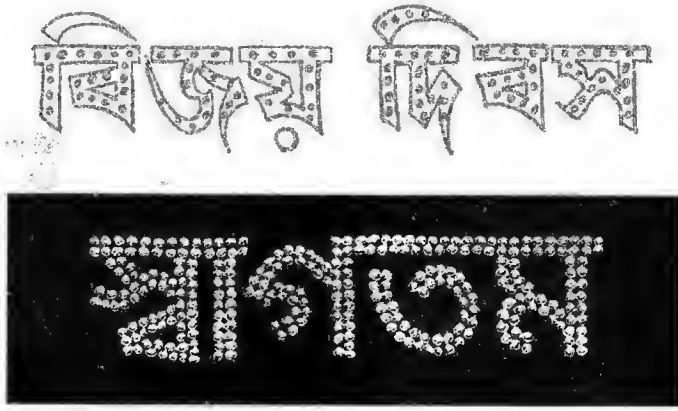 বিজয় দিবস
স্বাগতম